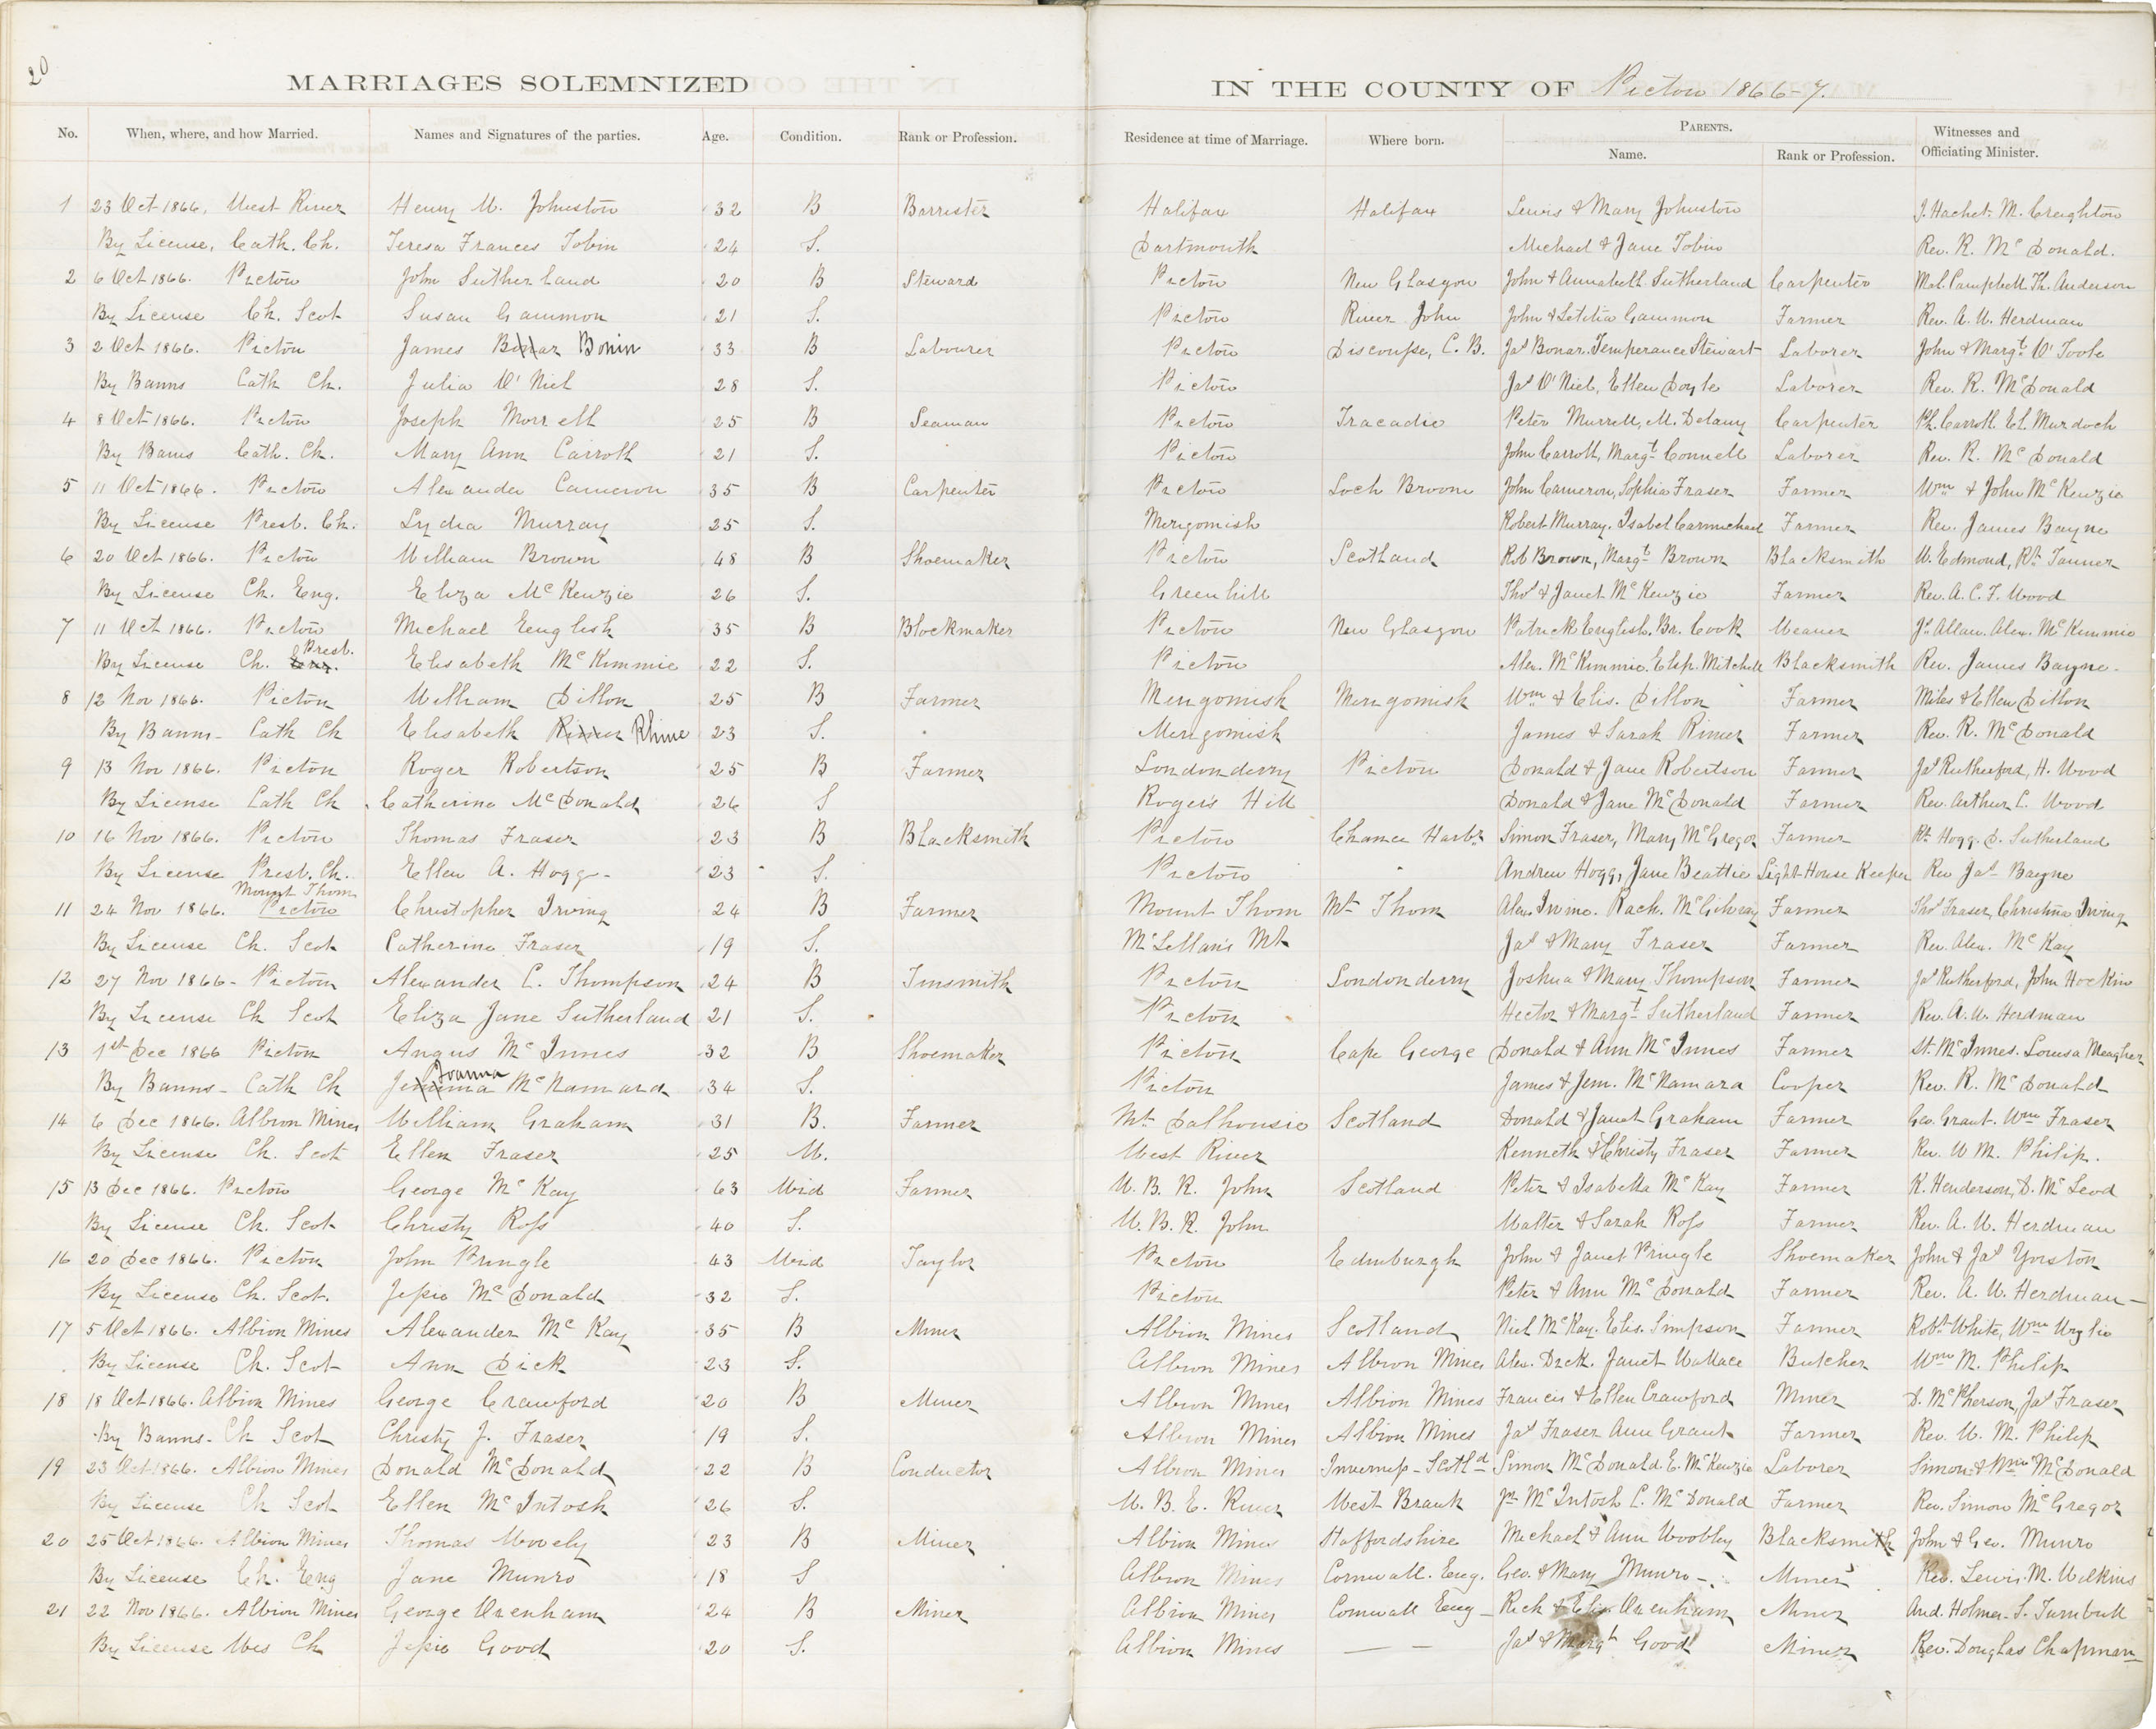 20
MARRIAGES SOLEMNIZED IN THE COUNTY OF Pictou 1866-7.
No. When, where, and how Married. Names and Signatures of the parties. Age. Condition. Rank or Profession. Residence at time of Marriage. Where born. PARENTS. Name. Rank or Profession. Witnesses and Officiating Minister.
1 23 Oct 1866, West River Henry W. Johnston 32 B Barrister Halifax Halifax Lewis & Mary Johnston M. Creighton
By License, Cath. Ch. Teresa Frances Tobin 24 S. Dartmouth Michael & Jane Tobin Rev. R. McDonald.
2 6 Oct 1866. Pictou John Sutherland 20 B Steward Pictou New Glasgow John & Annabell Sutherland Carpenter Mal. Campbell Th. Anderson
By License Ch. Scot Susan Gammon 21 S. Pictou River John John & Letitia Gammon Farmer Rev. A. W. Herdman
3 2 Oct 1866. Pictou James Bonar Bonin 33 B Labourer Pictou Discouse, C. B. Jas Bonar. Temperance Stewart Laborer John & Margt. O'Toole
By Banns Cath Ch. Julia O'Niel 28 S. Pictou Jas O'Niel, Ellen Doyle Laborer Rev. R. McDonald
4 8 Oct 1866. Pictou Joseph Morrell 25 B Seaman Pictou Tracadie Peter Murrell, M. Delany Carpenter Ph. Carroll. El. Murdoch
By Banns Cath. Ch. Mary Ann Carroll 21 S. Pictou John Carroll, Margt Connell Laborer Rev. R. McDonald
5 11 Oct 1866. Pictou Alexander Cameron 35 B Carpenter Pictou Loch Broom John Cameron, Sophia Fraser Farmer Wm & John McKenzie
By License Presb. Ch. Lydia Murray 25 S. Merigomish Robert Murray. Isabel Carmichael Farmer Rev. James Bayne
6 20 Oct 1866. Pictou William Brown 48 B Shoemaker Pictou Scotland Rob Brown, Margt Brown Blacksmith W. Edmond, Rt. Tanner
By License Ch. Eng. Eliza McKenzie 26 S. Greenhill Thos & Janet McKenzie Farmer Rev. A. C. F. Wood
7 11 Oct 1866. Pictou Michael English 35 B Blockmaker Pictou New Glasgow Patrick English. Br. Cook Weaver Js. Allan. Alex. McKimmie
By License Ch. Eng. Presb. Elisabeth McKimmie 22 S. Pictou Alex. McKimmie. Elsp. Mitchell Blacksmith Rev. James Bayne.
8 12 Nov 1866. Pictou William Dillon 25 B Farmer Merigomish Merigomish Wm & Elis. Dillon Farmer Miles & Ellen Dillon
By Banns- Cath Ch Elisabeth Rimer Rhime 23 S. Merigomish James & Sarah Rimer Farmer Rev. R. McDonald
9 13 Nov 1866. Pictou Roger Robertson 25 B Farmer Londonderry Pictou Donald & Jane Robertson Farmer Jas Rutherford, H. Wood
By License Cath Ch Catherine McDonald 26 S Roger's Hill Donald & Jane McDonald Farmer Rev. Arthur C. Wood
10 16 Nov 1866. Pictou Thomas Fraser 23 B Blacksmith Pictou Chance Harbr. Simon Fraser, Mary McGregor Farmer Rt. Hogg. D. Sutherland
By License Presb. Ch. Ellen A. Hogg- 23 S. Pictou Andrew Hogg, Jane Beattie Light-House Keeper Rev Jas Bayne
11 24 Nov 1866. Mount Thom Pictou Christopher Irving 24 B Farmer Mount Thom Mt Thom Alex. Irvine. Rach. McGilvray Farmer Thos Fraser, Christina Irving
By License Ch. Scot Catherine Fraser 19 S. McLellan's Mt Jas & Mary Fraser Farmer Rev. Alex. McKay
12 27 Nov 1866- Pictou Alexander C. Thompson 24 B Tinsmith Pictou Londonderry Joshua & Mary Thompson Farmer Jas Rutherford, John Hockin
By License Ch Scot Eliza Jane Sutherland 21 S. Pictou Hector & Margt Sutherland Farmer Rev. A. W. Herdman
13 1st Dec 1866 Pictou Angus McInnes 32 B Shoemaker Pictou Cape George Donald & Ann McInnes Farmer St. McInnes. Louisa Meagher
By Banns- Cath Ch Jemima Joanna McNamara 34 S. Pictou James & Jem. McNamara Cooper Rev. R. McDonald
14 6 Dec 1866. Albion Mines William Graham 31 B. Farmer Mt. Dalhousie Scotland Donald & Janet Graham Farmer Geo. Grant. Wm Fraser
By License Ch. Scot Ellen Fraser 25 W. West River Kenneth & Christy Fraser Farmer Rev. W M. Philip.
15 13 Dec 1866. Pictou George McKay 63 Wid Farmer W. B. R. John Scotland Peter & Isabella McKay Farmer K. Henderson, D. McLeod
By License Ch. Scot Christy Ross 40 S. W. B. R. John Walter & Sarah Ross Farmer Rev. A. W. Herdman
16 20 Dec 1866. Pictou John Pringle 43 Wid Taylor Pictou Edinburgh John & Janet Pringle Shoemaker John & Jas Yorston
By License Ch. Scot. Jessie McDonald 32 S. Pictou Peter & Ann McDonald Farmer Rev. A. W. Herdman-
17 5 Oct 1866. Albion Mines Alexander McKay 35 B Miner Albion Mines Scotland Niel McKay. Elis. Simpson Farmer Robt White, Wm
By License Ch. Scot Ann Dick 23 S. Albion Mines Albion Mines Alex. Dick. Janet Wallace Butcher Wm M. Philip
18 18 Oct 1866. Albion Mines George Crawford 20 B Miner Albion Mines Albion Mines Francis & Ellen Crawford Miner D. McPherson, Jas Fraser
By Banns- Ch Scot Christy J. Fraser 19 S. Albion Mines Albion Mines Jas Fraser Ann Grant Farmer Rev. W. M. Philip
19 23 Oct 1866. Albion Mines Donald McDonald 22 B Conductor Albion Mines Inverness-Scotld Simon McDonald E. McKenzie Laborer Simon & Wm McDonald
By License Ch Scot Ellen McIntosh 26 S. W. B. E. River West Branh Jn McIntosh C. McDonald Farmer Rev. Simon McGregor
20 25 Oct 1866. Albion Mines Thomas Wovely 23 B Miner Albion Mines Staffordshire Michael & Ann Woobley Blacksmith John & Geo. Munro
By License Ch. Eng Jane Munro 18 S Albion Mines Cornwall. Eng. Geo. & Mary Munro- Miner Rev. Lewis. M. Wilkins
21 22 Nov 1866. Albion Mines George Oxenham 24 B Miner Albion Mines Cornwall Eng- Rich & Eliz Oxenham Miner And. Holmes. S. Turnbull
By License Wes Ch Jessie Good 20 S. Albion Mines — — Jas & Margt Good Miner Rev. Douglas Chapman